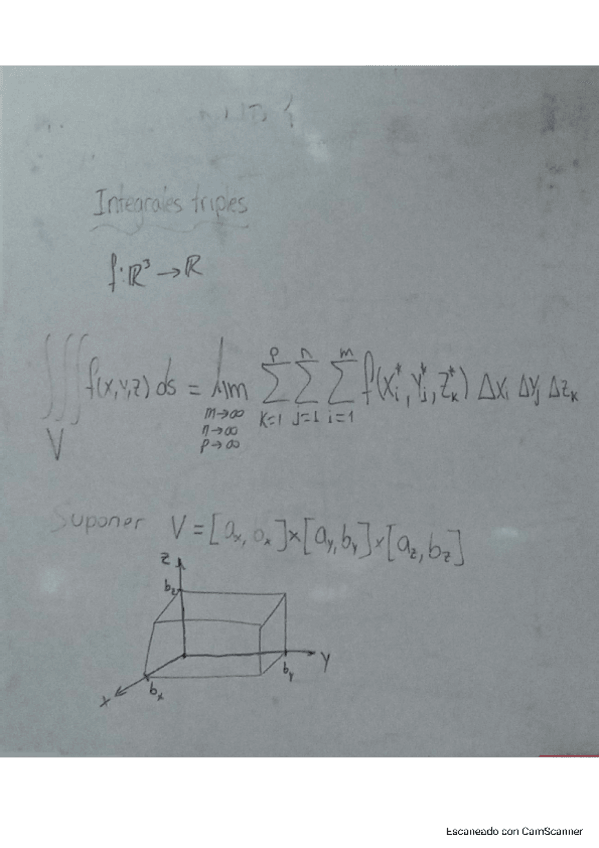 Integrales triples
f: ℝ³ → ℝ
∭_V f(x,y,z) ds = lim_{m→∞, n→∞, p→∞} ∑_{K=1}^{p} ∑_{j=1}^{n} ∑_{i=1}^{m} f(x_i^*, y_j^*, z_k^*) Δx_i Δy_j Δz_k
Suponer V = [a_x, b_x]×[a_y, b_y]×[a_z, b_z]
z
b_z
y
b_y
x
b_x
Escaneado con CamScanner